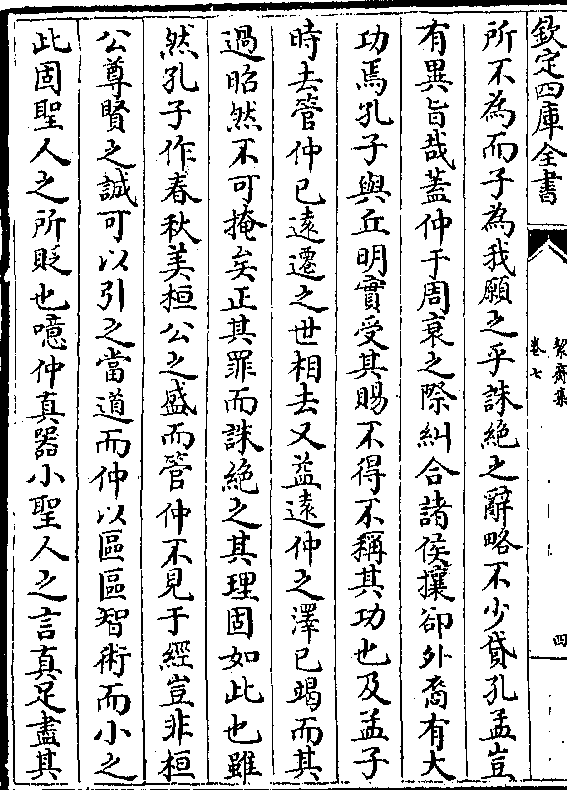 欽定四庫全書
絜齋集
卷七
四
所不為而子為我願之乎誅絕之辭略不少貸孔孟豈
有異旨哉蓋仲于周衰之際糾合諸侯攘卻外裔有大
功焉孔子與丘明實受其賜不得不稱其功也及孟子
時去管仲已遠遷之世相去又益遠仲之澤已竭而其
過昭然不可掩矣正其罪而誅絕之其理固如此也雖
然孔子作春秋美桓公之盛而管仲不見于經豈非桓
公尊賢之誠可以引之當道而仲以區區智術而小之
此固聖人之所貶也噫仲真器小聖人之言真足盡其